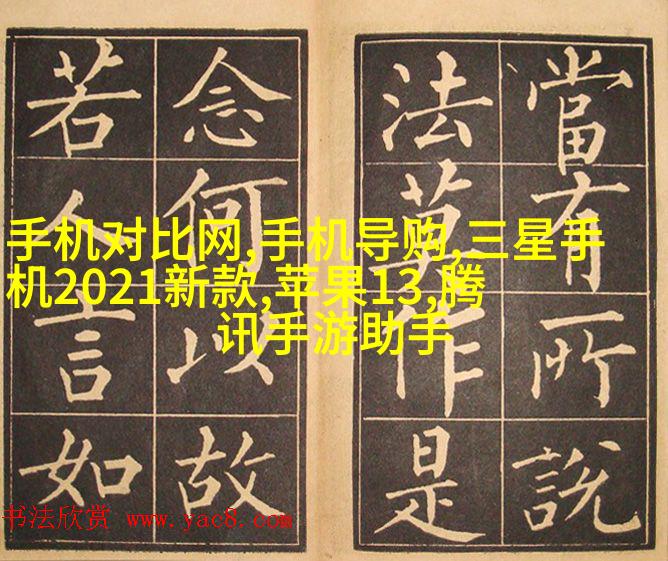 當有所說
法莫作是
念何以故
若人言如
手机对比网,手机导购,三星手
机2021新款,苹果13,腾
讯手游助手
书法欣赏 www.yac8.com